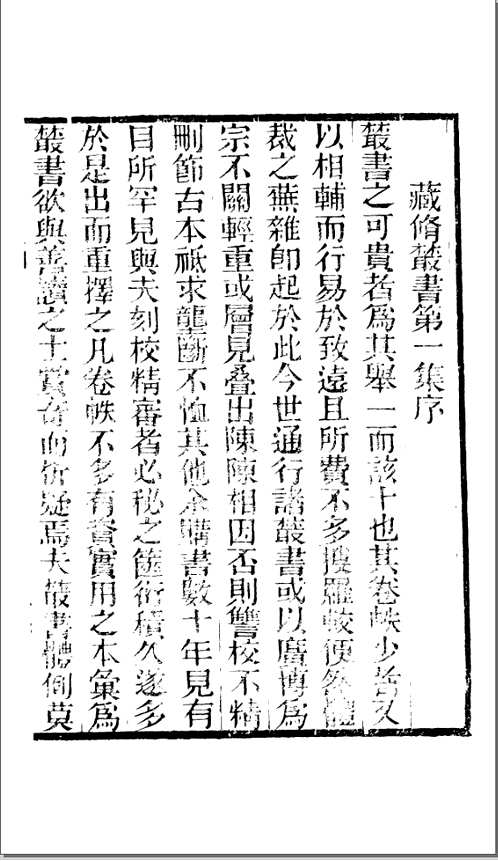 藏脩叢書第一集序
叢書之可貴者爲其舉一而該十也其卷帙少皆又
以相輔而行易於致遠且所費不多搜羅較便然體
裁之蕪雜卽起於此今世通行諸叢書或以廣博爲
宗不關輕重或層見叠出陳陳相因否則讐校不精
刪節古本祗求壟斷不恤其他余購書數十年見有
目所罕見與夫刻校精審者必秘之篋衍積久遂多
於是出而重擇之凡卷帙不多有資實用之本彙爲
叢書欲與善讀之士賞奇而析疑焉夫叢書體例莫